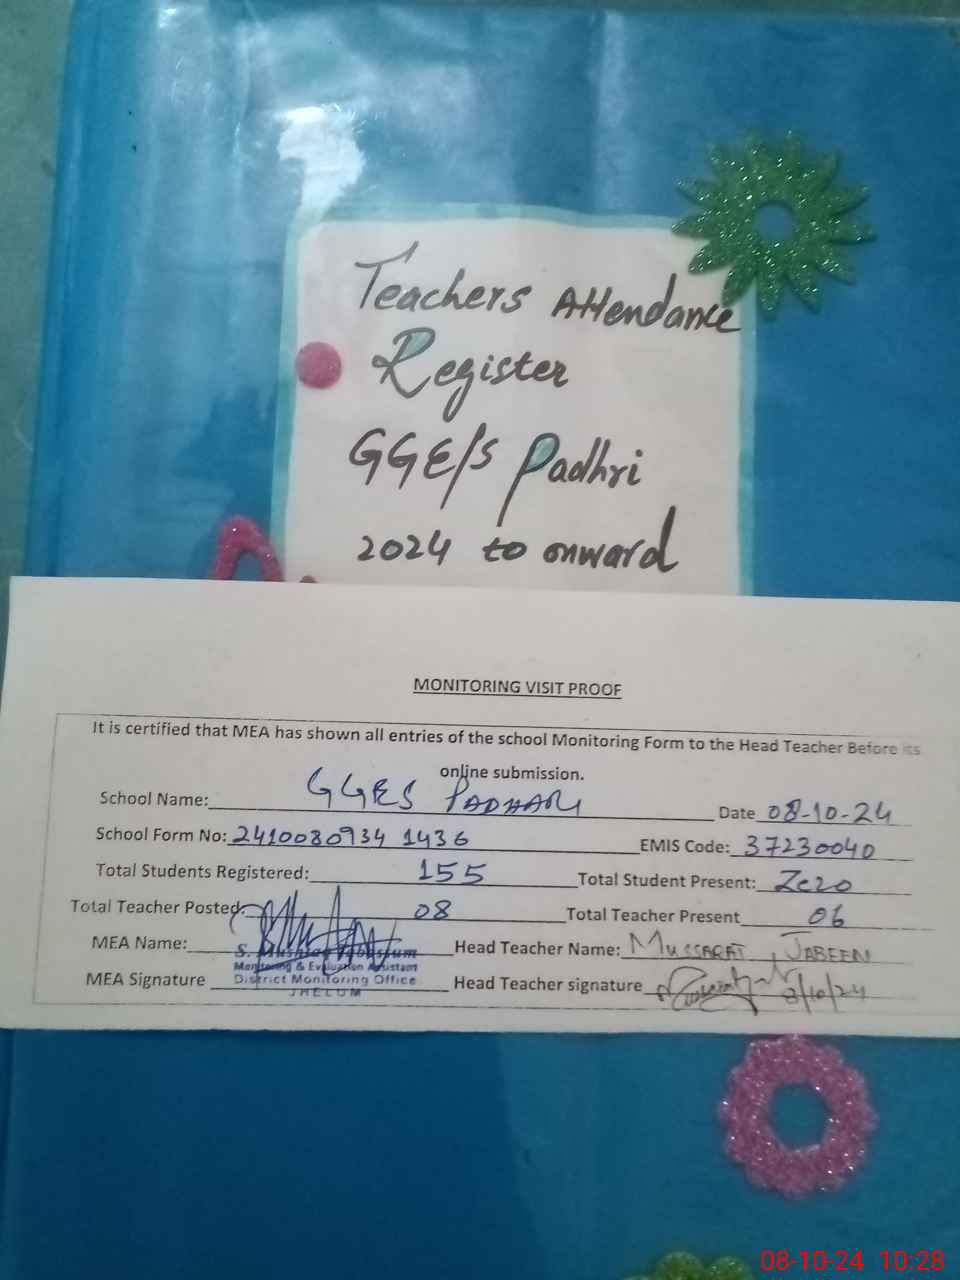 Teachers Attendance
Register
GGE/S Padhri
2024 to onward
MONITORING VISIT PROOF
It is certified that MEA has shown all entries of the school Monitoring Form to the Head Teacher Before its
online submission.
School Name: GGES PADHARI Date 08-10-24
School Form No: 2410080934 1436 EMIS Code: 37230040
Total Students Registered: 155 Total Student Present: Zero
Total Teacher Posted: 08 Total Teacher Present 06
MEA Name: S. Head Teacher Name: MUSSARAT JABEEN
Monitoring & Evaluation Assistant
MEA Signature District Monitoring Office Head Teacher signature 8/10/24
JHELUM
08-10-24 10:28